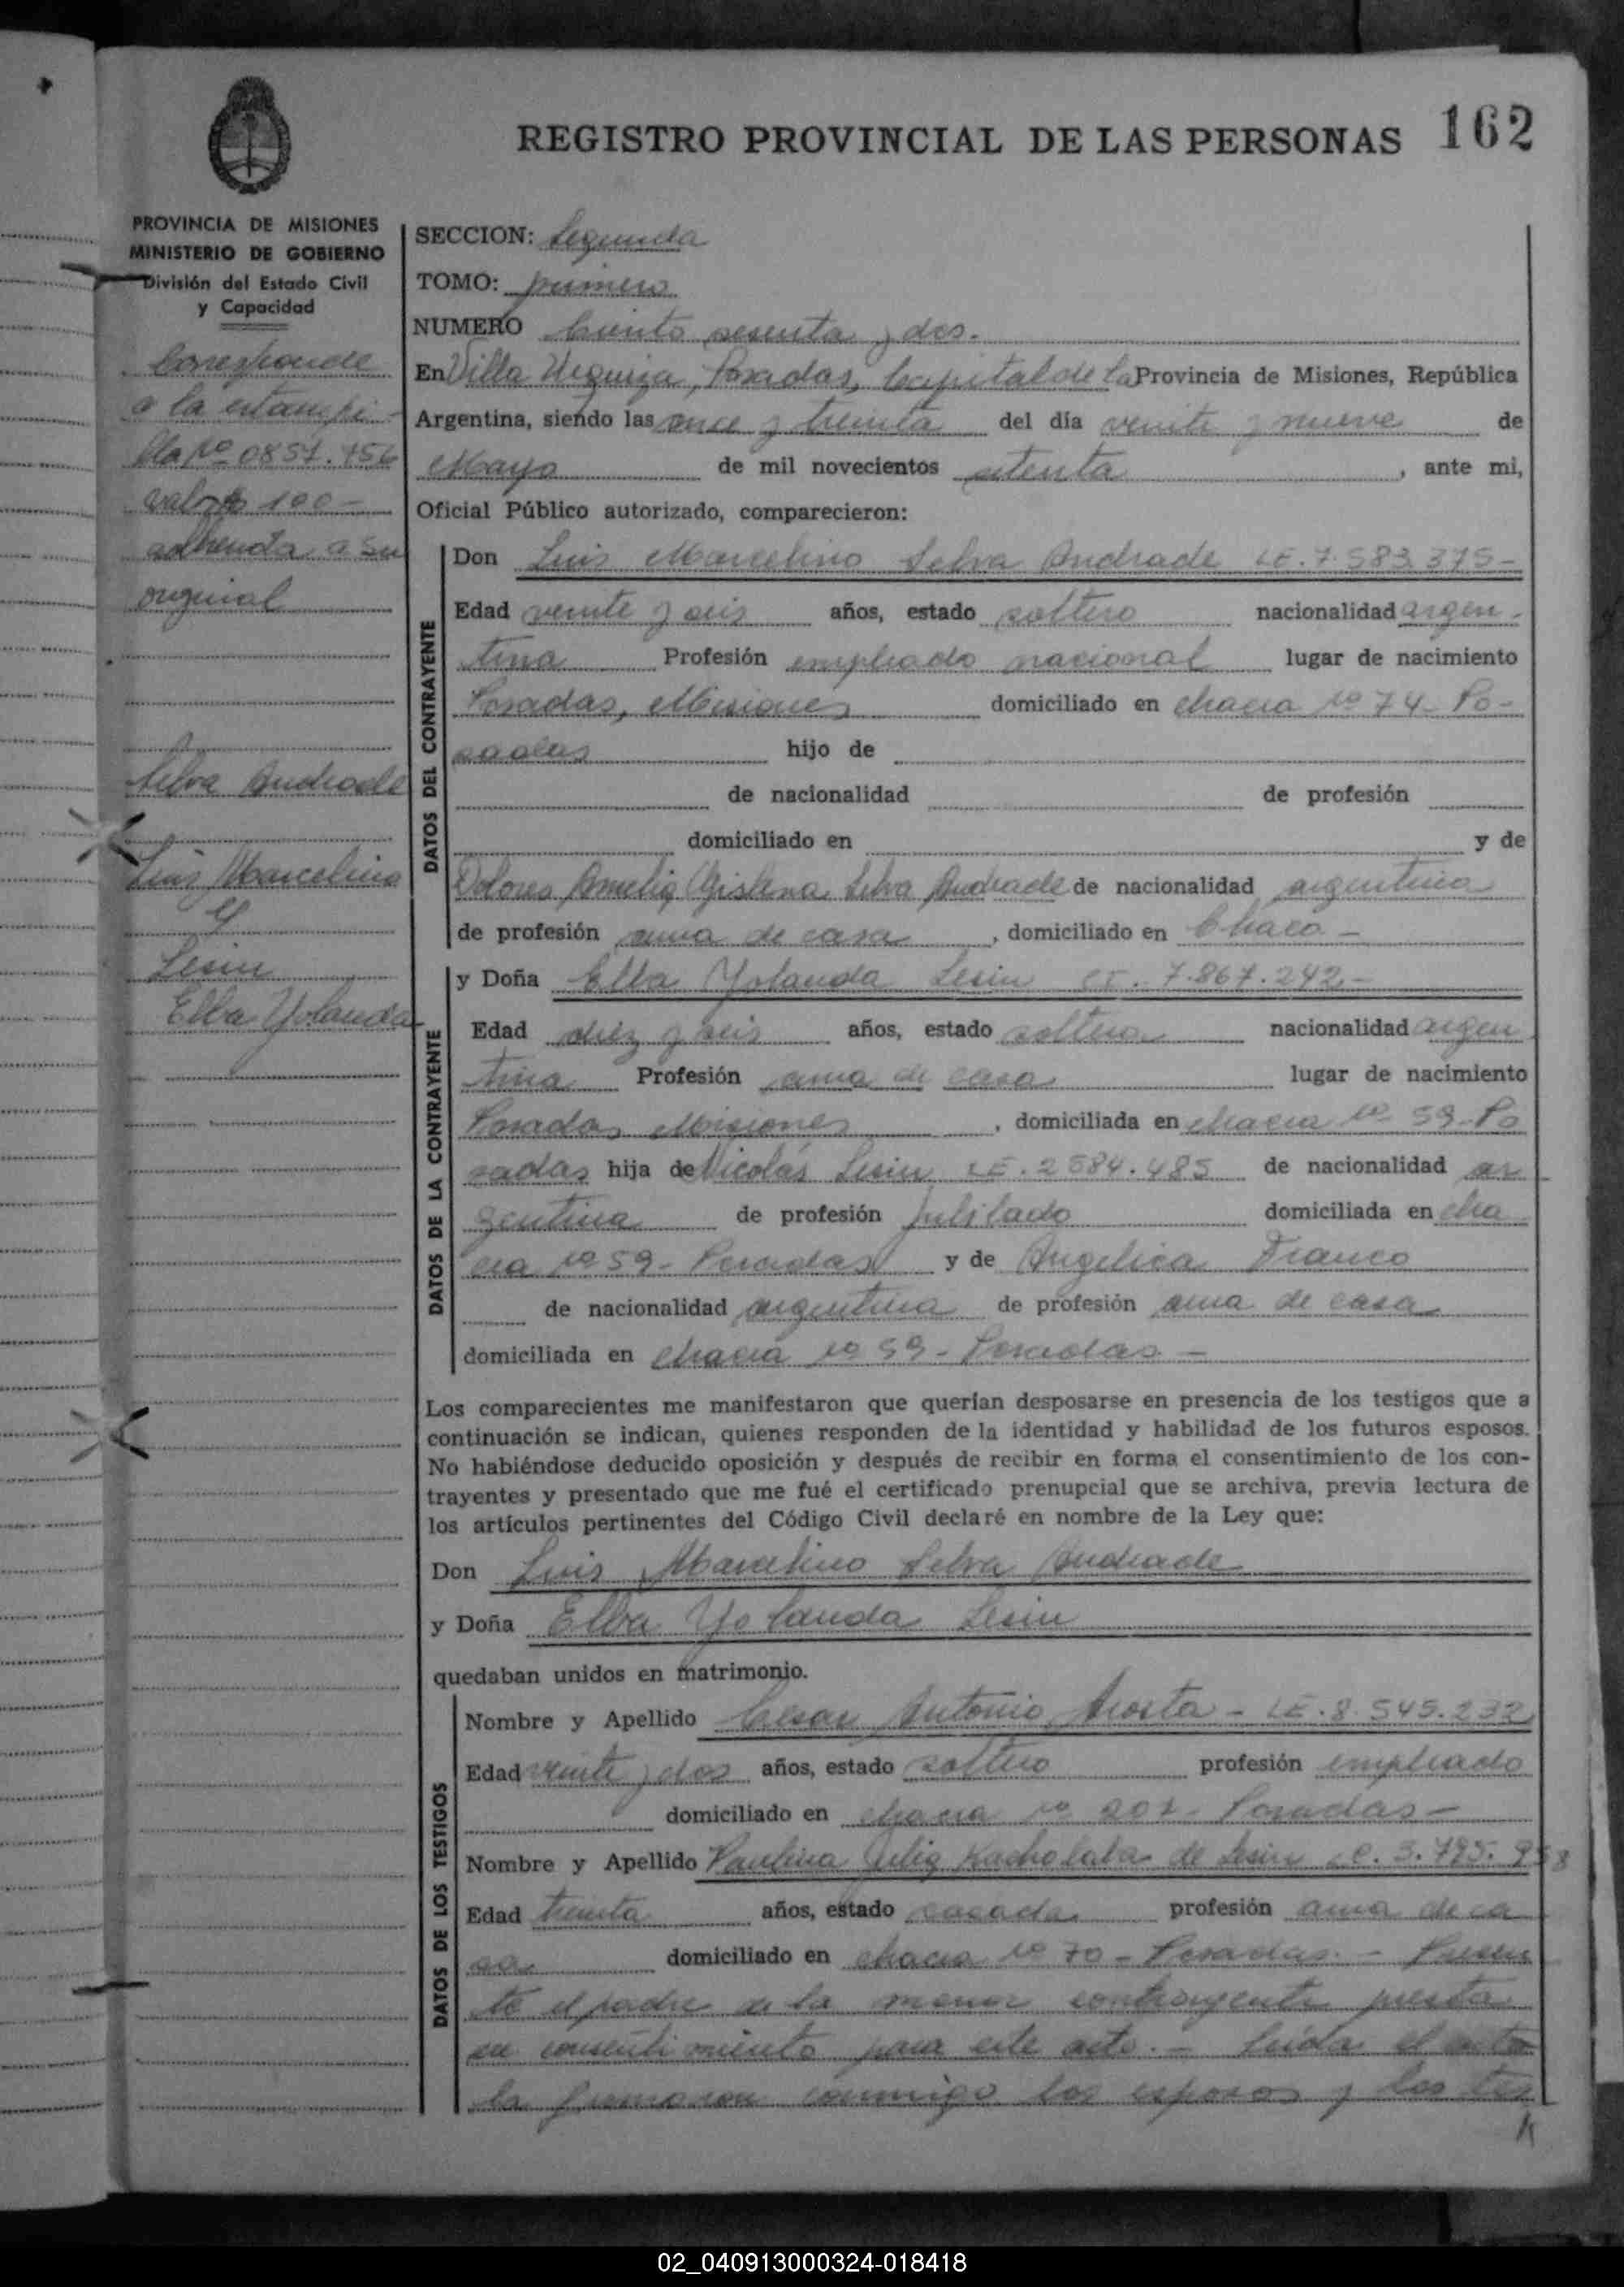 REGISTRO PROVINCIAL DE LAS PERSONAS 162
PROVINCIA DE MISIONES
MINISTERIO DE GOBIERNO
División del Estado Civil
y Capacidad
Corresponde
a la estampi-
lla Nº 0857.156
valor $ 100-
adherida a su
original
Selva Andrade
Luis Marcelino
y
Lesiu
Elba Yolanda
SECCION: Segunda
TOMO: primero
NUMERO Ciento sesenta y dos.
En Villa Urquiza, Posadas, Capital de la Provincia de Misiones, República
Argentina, siendo las once y treinta del día veinte y nueve de
Mayo de mil novecientos setenta, ante mi,
Oficial Público autorizado, comparecieron:
DATOS DEL CONTRAYENTE
Don Luis Marcelino Selva Andrade LE. 7.583.375-
Edad veinte y seis años, estado soltero nacionalidad argen-
tina Profesión empleado nacional lugar de nacimiento
Posadas, Misiones domiciliado en chacra Nº 74- Po-
sadas hijo de
de nacionalidad de profesión
domiciliado en y de
Dolores Amelia Gislena Selva Andrade de nacionalidad argentina
de profesión ama de casa, domiciliado en Chaco-
DATOS DE LA CONTRAYENTE
y Doña Elba Yolanda Lesiu 7.867.242-
Edad diez y seis años, estado soltera nacionalidad argen
tina Profesión ama de casa lugar de nacimiento
Posadas Misiones, domiciliada en chacra Nº 59- Po
sadas hija de Nicolás Lesiu LE. 2584.485 de nacionalidad ar
gentina de profesión jubilado domiciliada en cha
cra Nº 59- Posadas y de Angelica Franco
de nacionalidad argentina de profesión ama de casa
domiciliada en chacra Nº 59- Posadas-
Los comparecientes me manifestaron que querían desposarse en presencia de los testigos que a
continuación se indican, quienes responden de la identidad y habilidad de los futuros esposos.
No habiéndose deducido oposición y después de recibir en forma el consentimiento de los con-
trayentes y presentado que me fué el certificado prenupcial que se archiva, previa lectura de
los artículos pertinentes del Código Civil declaré en nombre de la Ley que:
Don Luis Marcelino Selva Andrade
y Doña Elba Yolanda Lesiu
quedaban unidos en matrimonio.
DATOS DE LOS TESTIGOS
Nombre y Apellido Cesar Antonio Acosta- LE. 8.545.232
Edad veinte y dos años, estado soltero profesión empleado
domiciliado en chacra Nº 207- Posadas-
Nombre y Apellido Paulina Julia de Lesiu 3.795.958
Edad treinta años, estado casada profesión ama de ca
sa domiciliado en chacra Nº 70- Posadas.- Presen
te el padre de la menor contrayente presta
su consentimiento para este acto.- Leída el acta
la firmaron conmigo los esposos y los tes
02_040913000324-018418